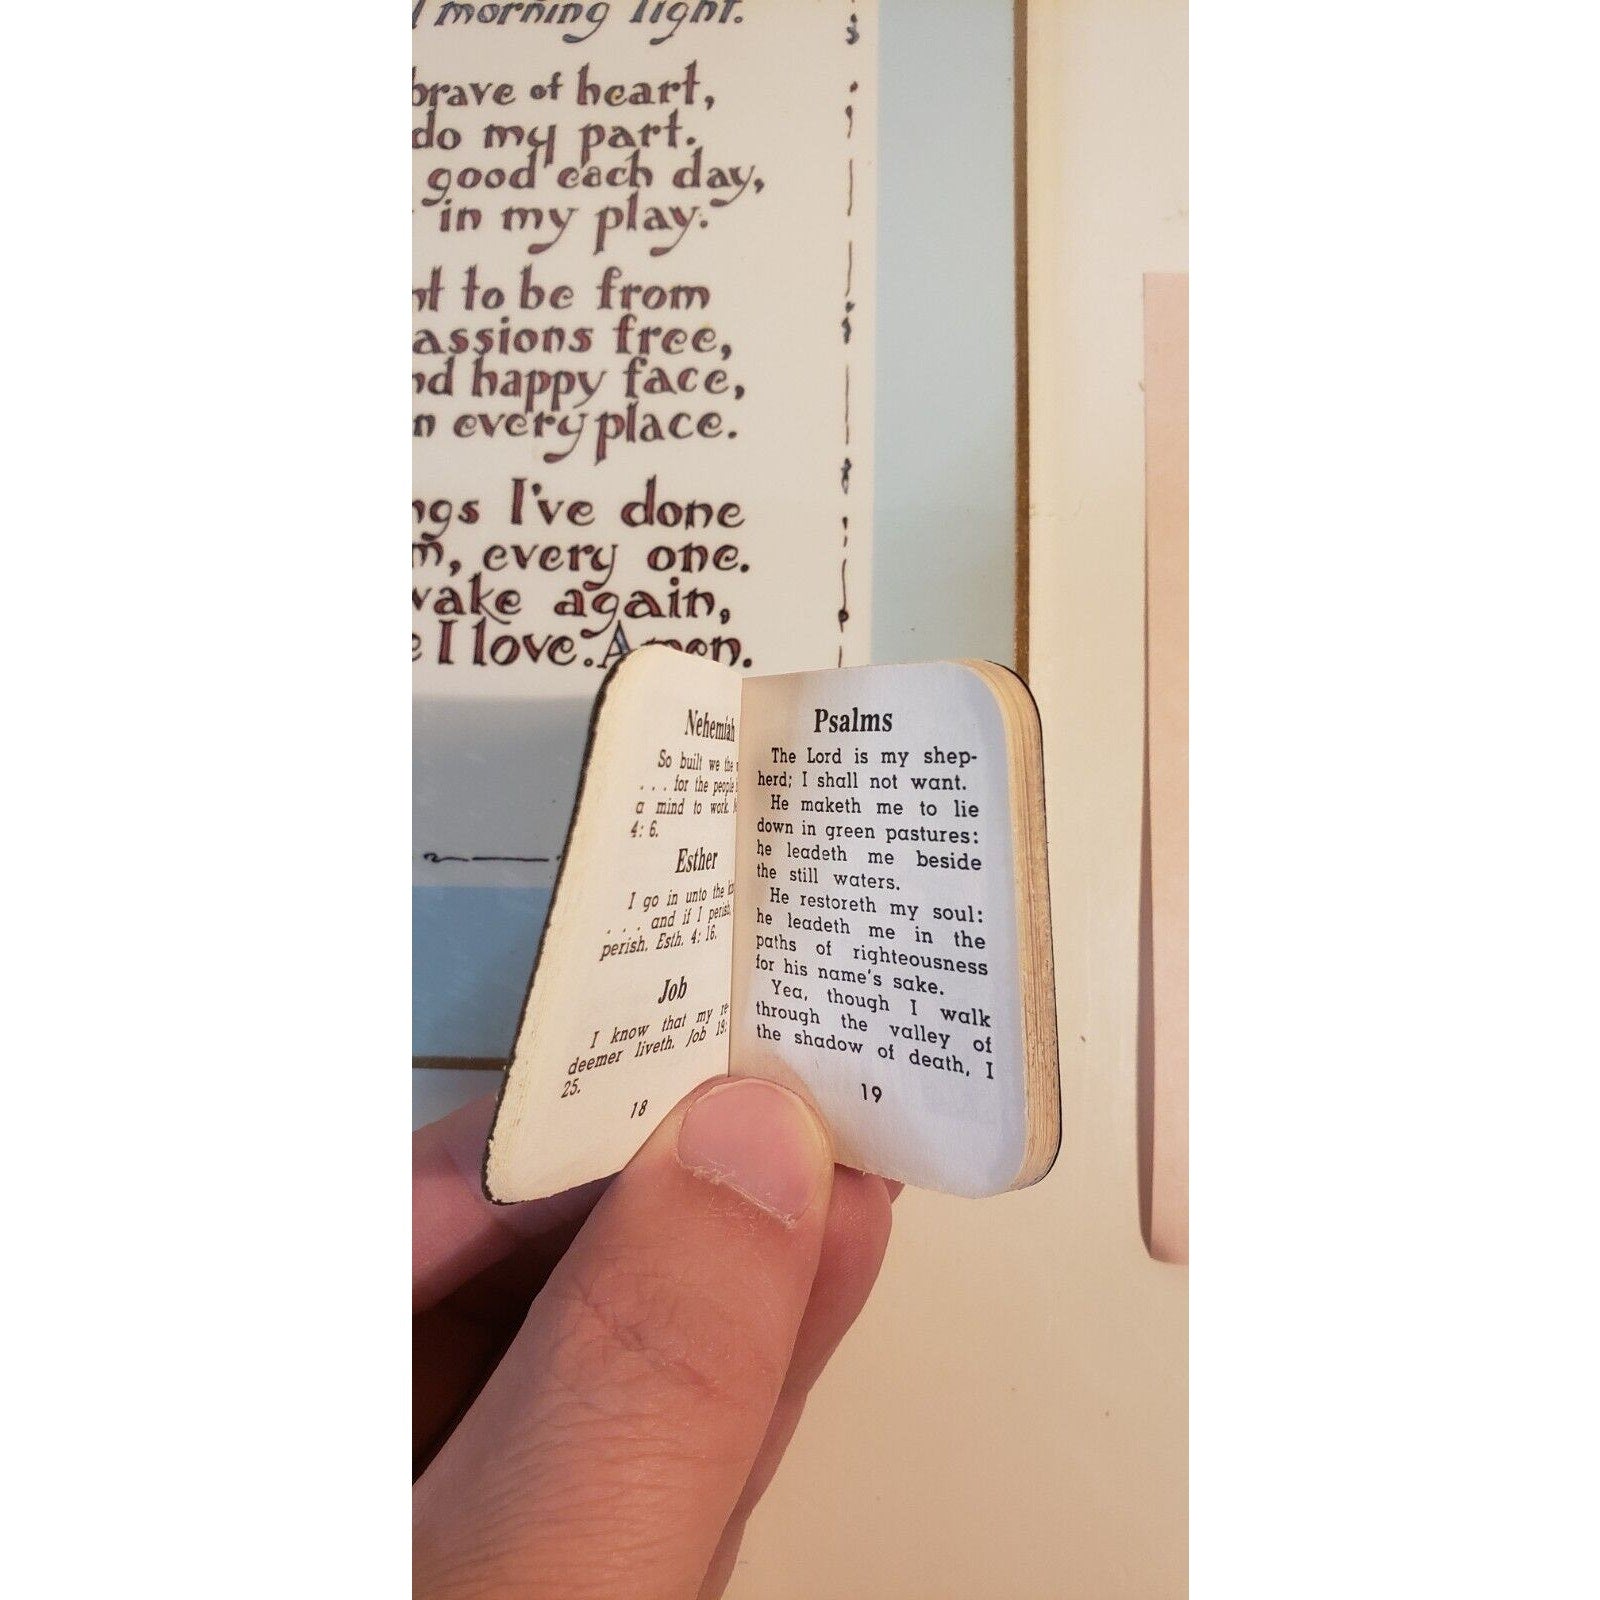 morning light.
brave of heart,
do my part.
good each day,
in my play.
to be from
free,
happy face,
every place.
I've done
every one.
again,
I love. Amen.
Nehemiah
So built we the
. . . for the people
a mind to work.
4: 6.
Esther
I go in unto the
. . . and if I perish,
perish. Esth. 4: 16.
Job
I know that my re
deemer liveth. Job 19:
25.
18
Psalms
The Lord is my shep-
herd; I shall not want.
He maketh me to lie
down in green pastures:
he leadeth me beside
the still waters.
He restoreth my soul:
he leadeth me in the
paths of righteousness
for his name's sake.
Yea, though I walk
through the valley of
the shadow of death, I
19